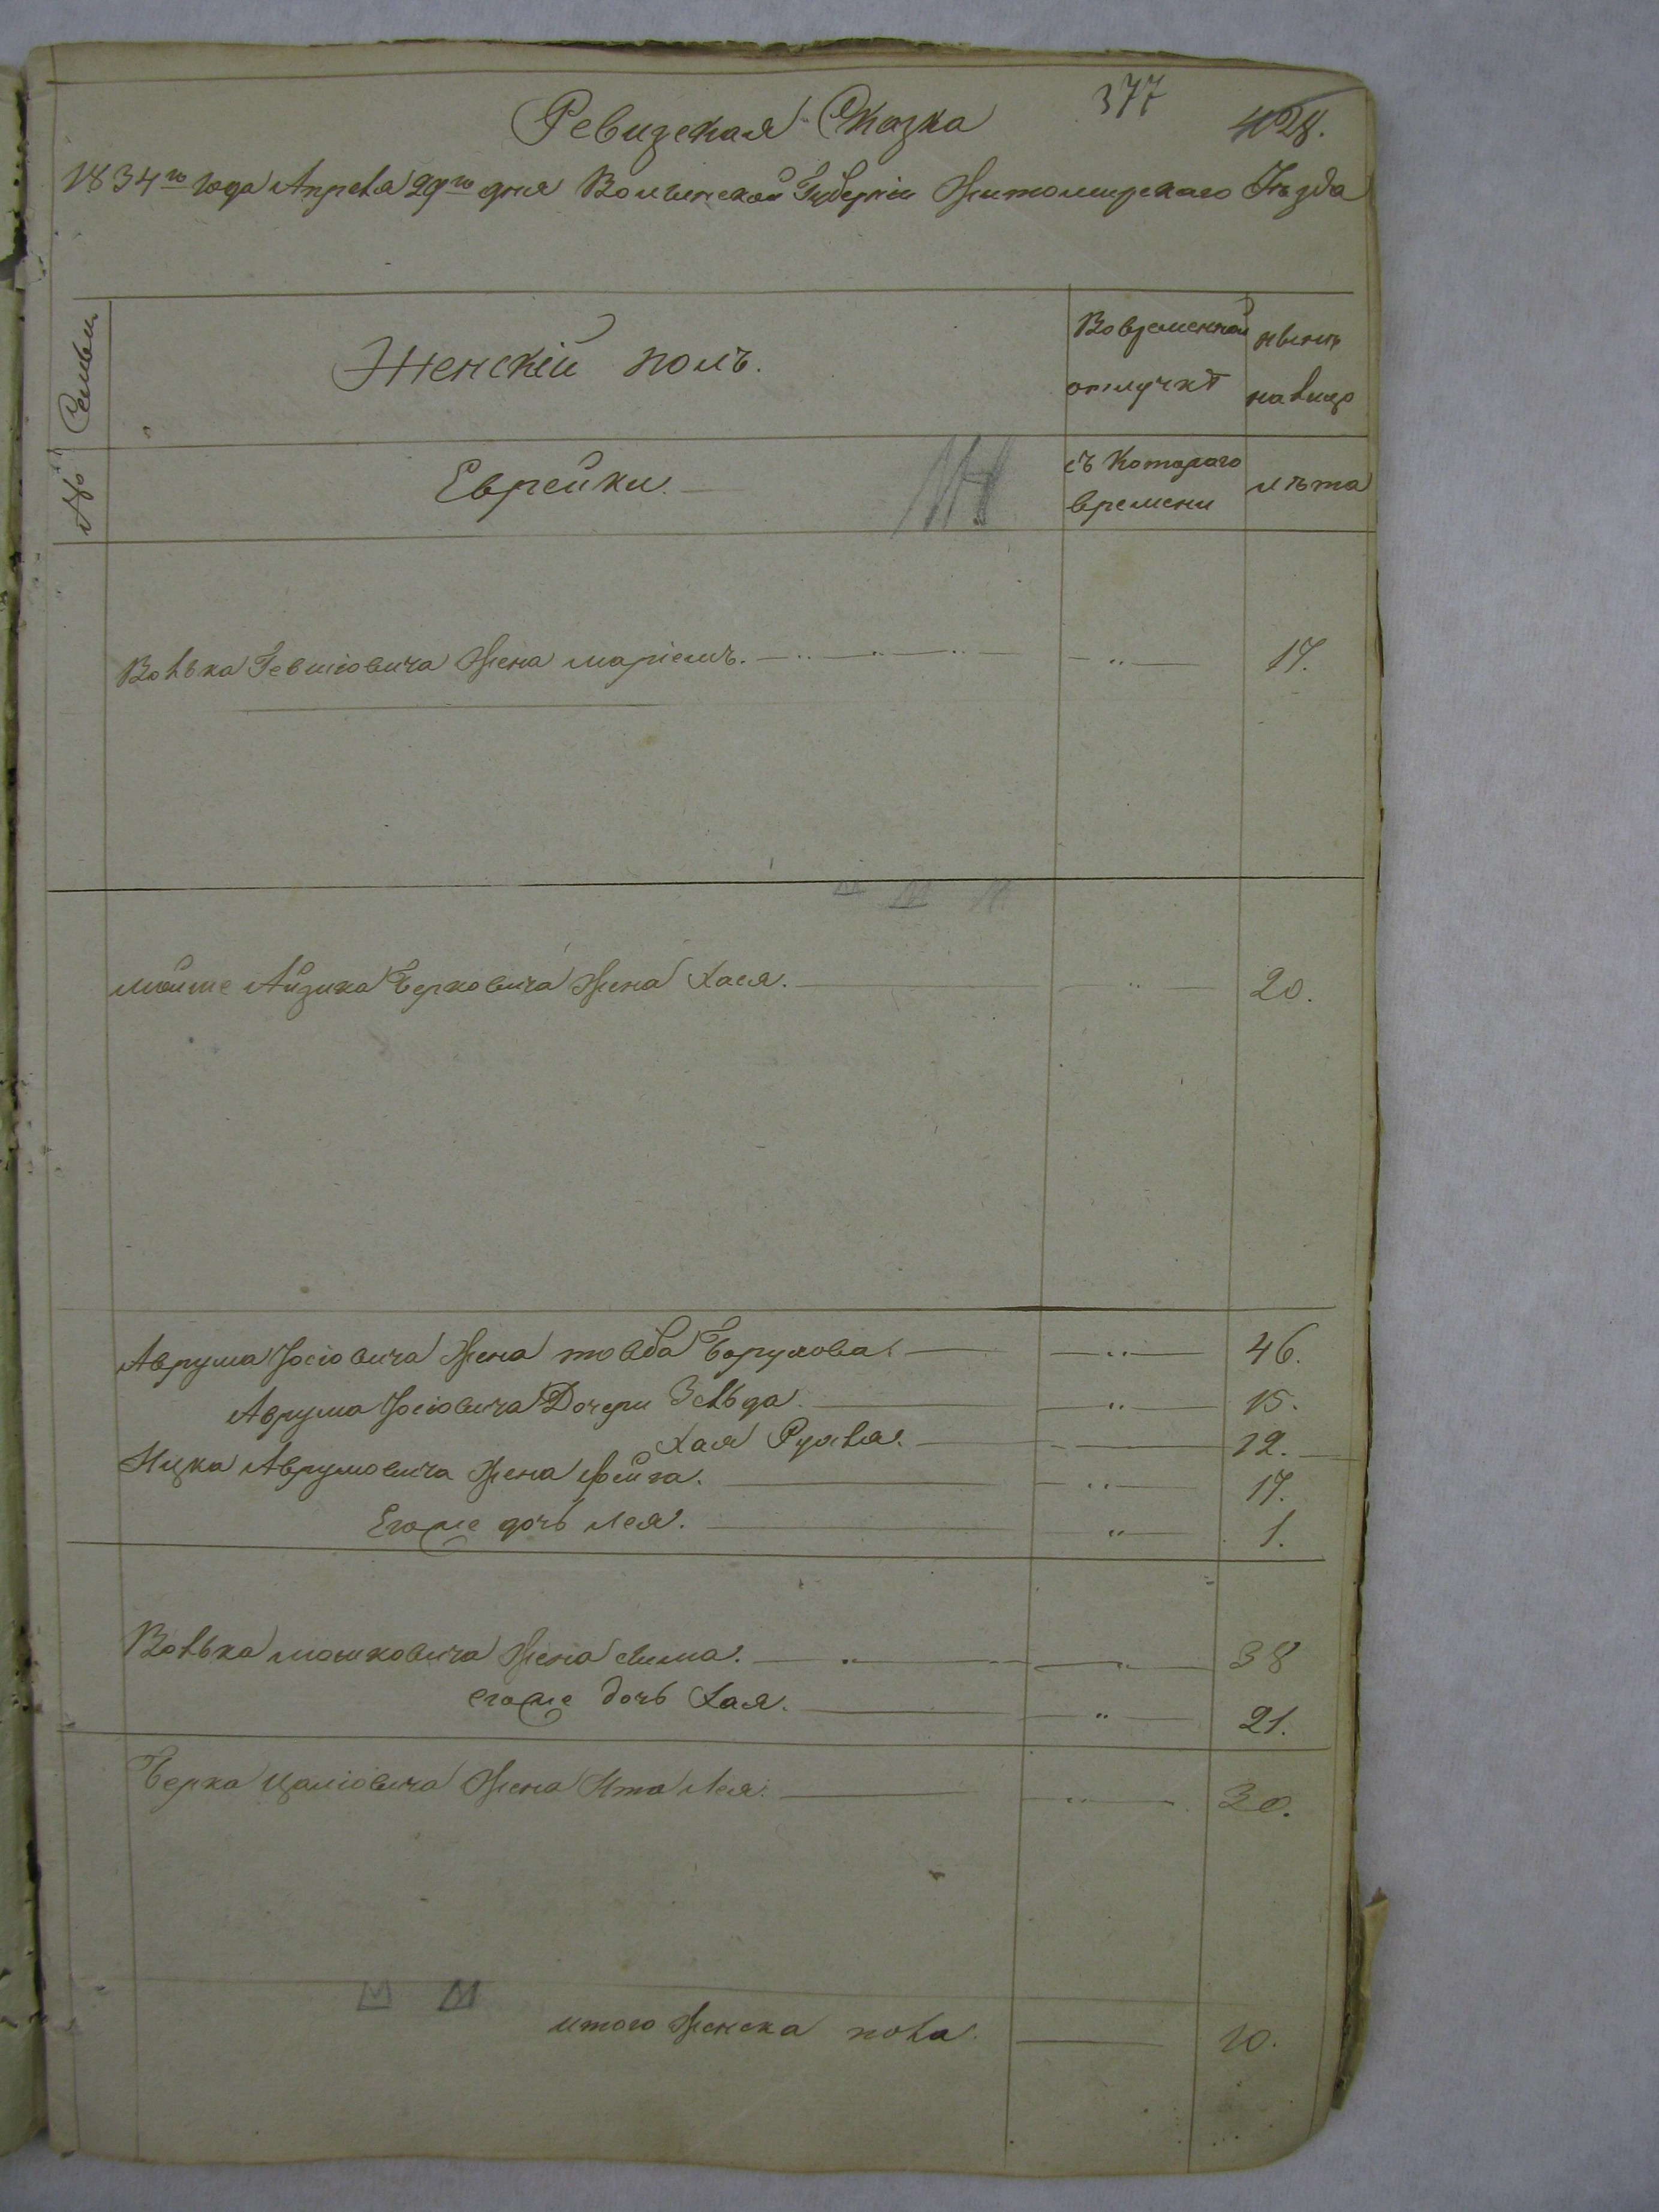 377
428.
Ревизская Сказка
1834го года Апреля 29го дня Волынской Губернии Житомирского Уъзда
№ Семьи
Женскій полъ.
Во временной отлучкѣ
нынѣ на лицо
Еврейки.
съ котораго времени
лѣта
Волька Гевшіовича Жена маріемъ. 17.
мойше Айзика Берковича Жена Хася. 20.
Аврума Іосіовича Жена товба Борухова. 46.
Аврума Іосіовича Дочери Зельда. 15.
Хая Рухля. 12.
Ицка Аврумовича Жена фейга. 17.
Егоже дочь лея. 1.
Волька мошковича Жена сима. 38
егоже дочь Хая. 21.
Берка Цаліовича Жена Ита Лея. 30.
итого Женска пола. 10.